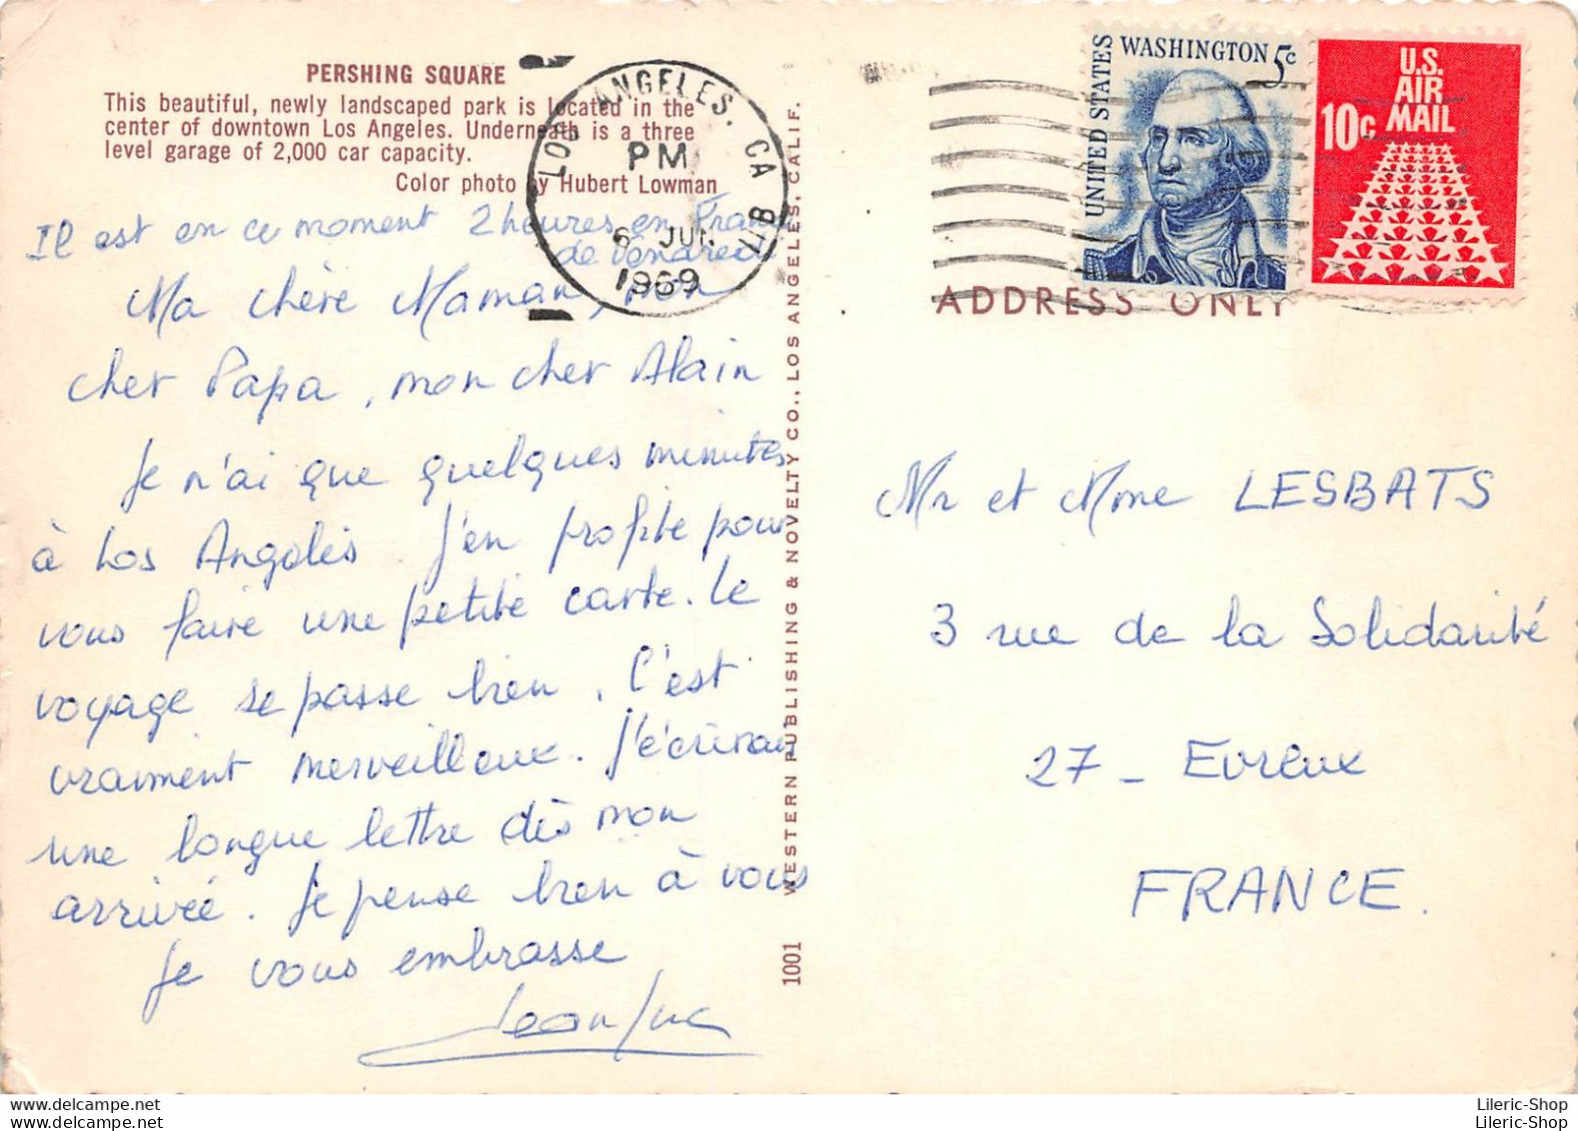 PERSHING SQUARE
This beautiful, newly landscaped park is located in the
center of downtown Los Angeles. Underneath is a three
level garage of 2,000 car capacity.
Color photo by Hubert Lowman
Il est en ce moment 2 heures en
de Vendredi
Ma chère Maman, mon
cher Papa, mon cher Alain
Je n'ai que quelques minutes
à Los Angelès J'en profite pour
vous faire une petite carte. Le
voyage se passe bien. C'est
vraiment merveilleux. J'écrirai
une longue lettre dès mon
arrivée. Je pense bien à vous
Je vous embrasse
Jean Luc
1001 WESTERN PUBLISHING & NOVELTY CO., LOS ANGELES, CALIF.
LOS ANGELES, CA
PM
6 JUN
1969
UNITED STATES
WASHINGTON 5c
U.S.
AIR
MAIL
10c
ADDRESS ONLY
Mr et Mme LESBATS
3 rue de la Solidarité
27 - Evreux
FRANCE.
Lileric-Shop
Lileric-Shop
delcampe.net
delcampe.net